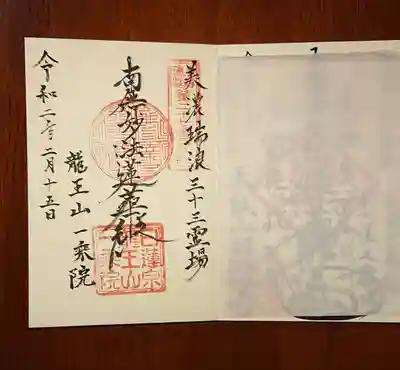 美濃瑞浪三十三霊場
南無妙法蓮華経
龍王山一乗院
令和二年二月十五日
日蓮宗
龍王山
一乗院